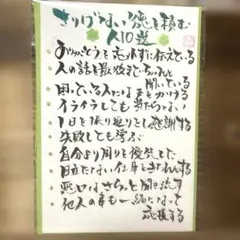 さりげない徳を積む
人10選
ありがとうを忘れずに伝えている
人の話を最後までちゃんと
聞いている
困っている人には声をかける
イライラしても当たらない
1日を振り返りして感謝する
失敗しても学ぶ
自分より周りを優先した
目立たない仕事もきちんとする
悪口はさらっと聞き流す
他人の幸も一緒になって
応援する